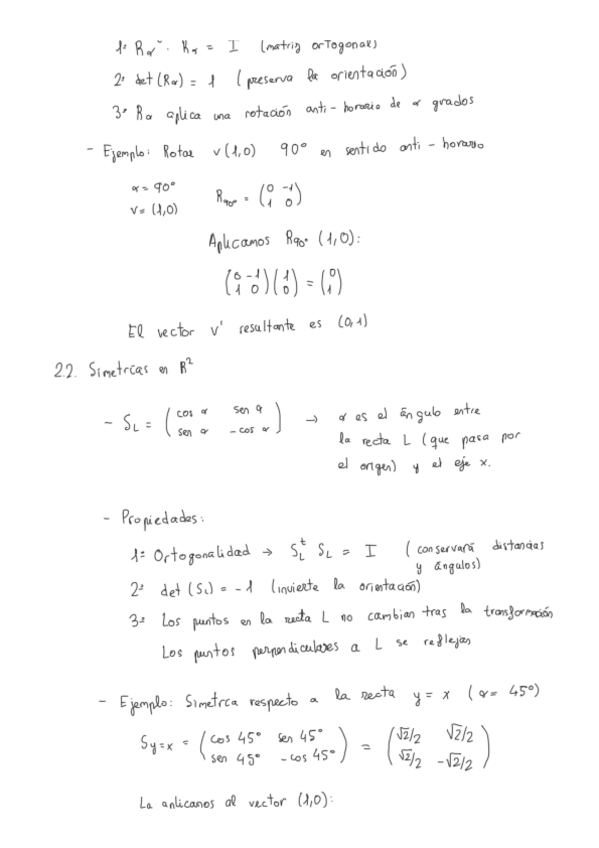 1ª Rα^t · Rα = I (matriz ortogonal)
2ª det (Rα) = 1 ( preserva la orientación)
3ª Rα aplica una rotación anti-horaria de α grados
- Ejemplo: Rotar v (1,0) 90° en sentido anti-horario
α = 90°
v = (1,0)
R90° = (0 -1
1 0)
Aplicamos R90° (1,0):
(0 -1
1 0) (1
0) = (0
1)
El vector v' resultante es (0,1)
2.2. Simetrías en R²
- SL = (cos α sen α
sen α -cos α) → α es el ángulo entre
la recta L (que pasa por
el origen) y el eje x.
- Propiedades:
1ª Ortogonalidad → SL^t SL = I (conservará distancias
y ángulos)
2ª det (SL) = -1 (invierte la orientación)
3ª Los puntos en la recta L no cambian tras la transformación
Los puntos perpendiculares a L se reflejan
- Ejemplo: Simetría respecto a la recta y = x (α = 45°)
Sy=x = (cos 45° sen 45°
sen 45° -cos 45°) = (√2/2 √2/2
√2/2 -√2/2)
La aplicamos al vector (1,0):